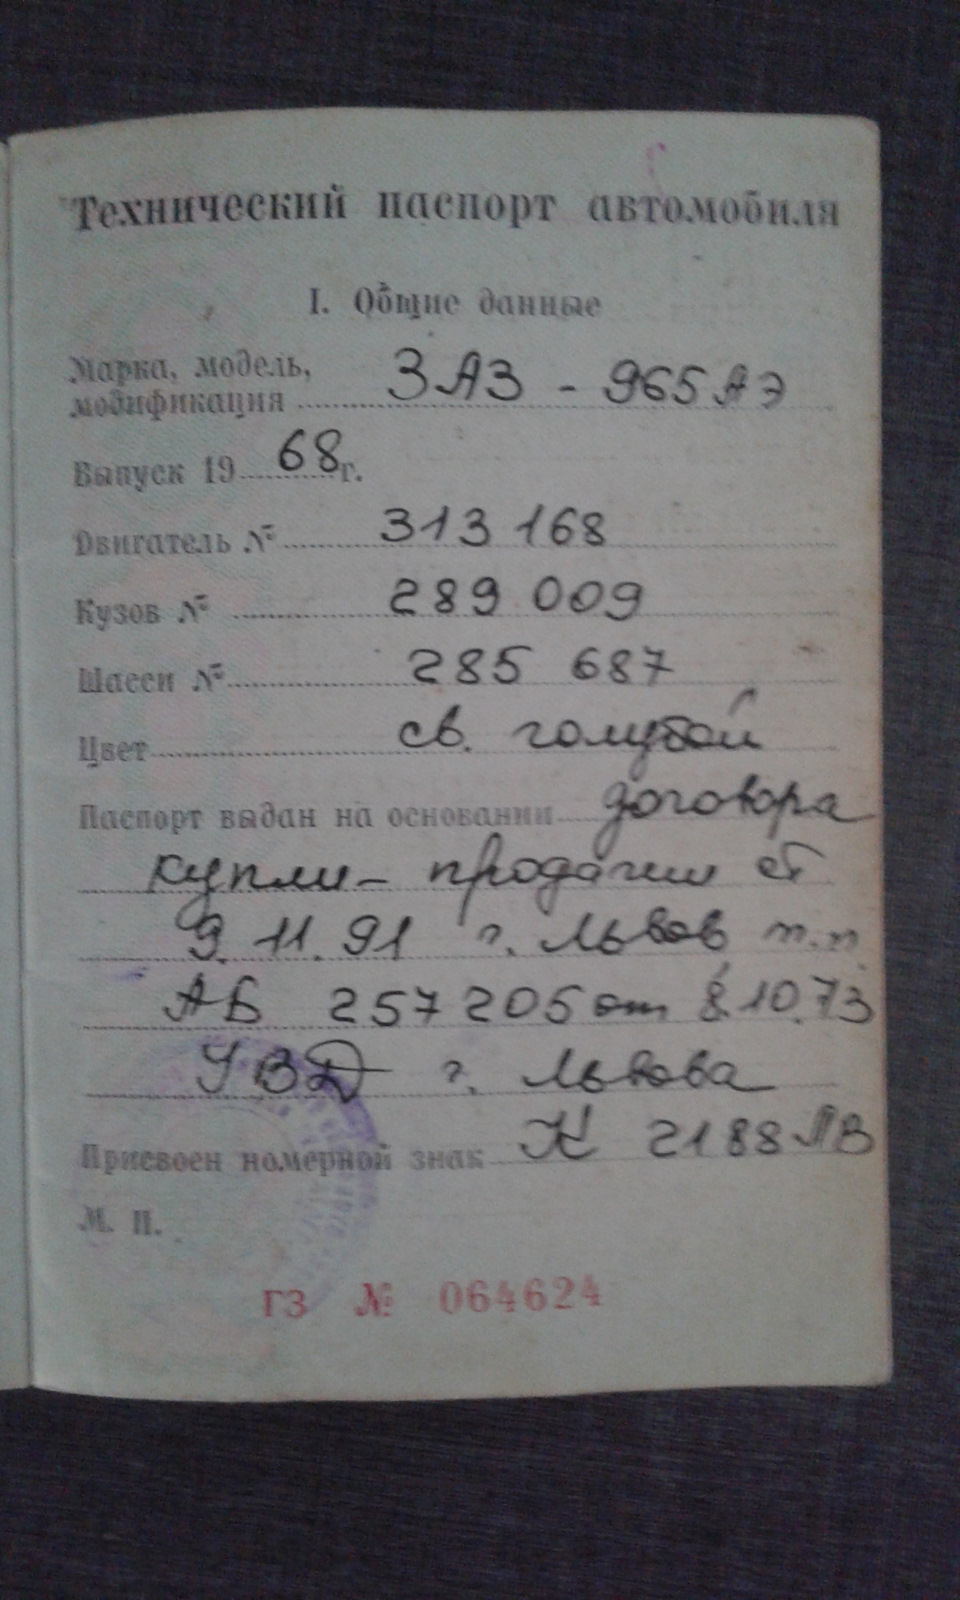 Технический паспорт автомобиля
I. Общие данные
Марка, модель,
модификация ЗАЗ - 965АЭ
Выпуск 19 68 г.
Двигатель № 313 168
Кузов № 289 009
Шасси № 285 687
Цвет св. голубой
Паспорт выдан на основании договора
купли - продажи от
9.11.91 г. Львов т.п.
АБ 257205 от 8.10.73
УВД г. Львова
Присвоен номерной знак К 2188 ЛВ
М. П.
ГЗ № 064624